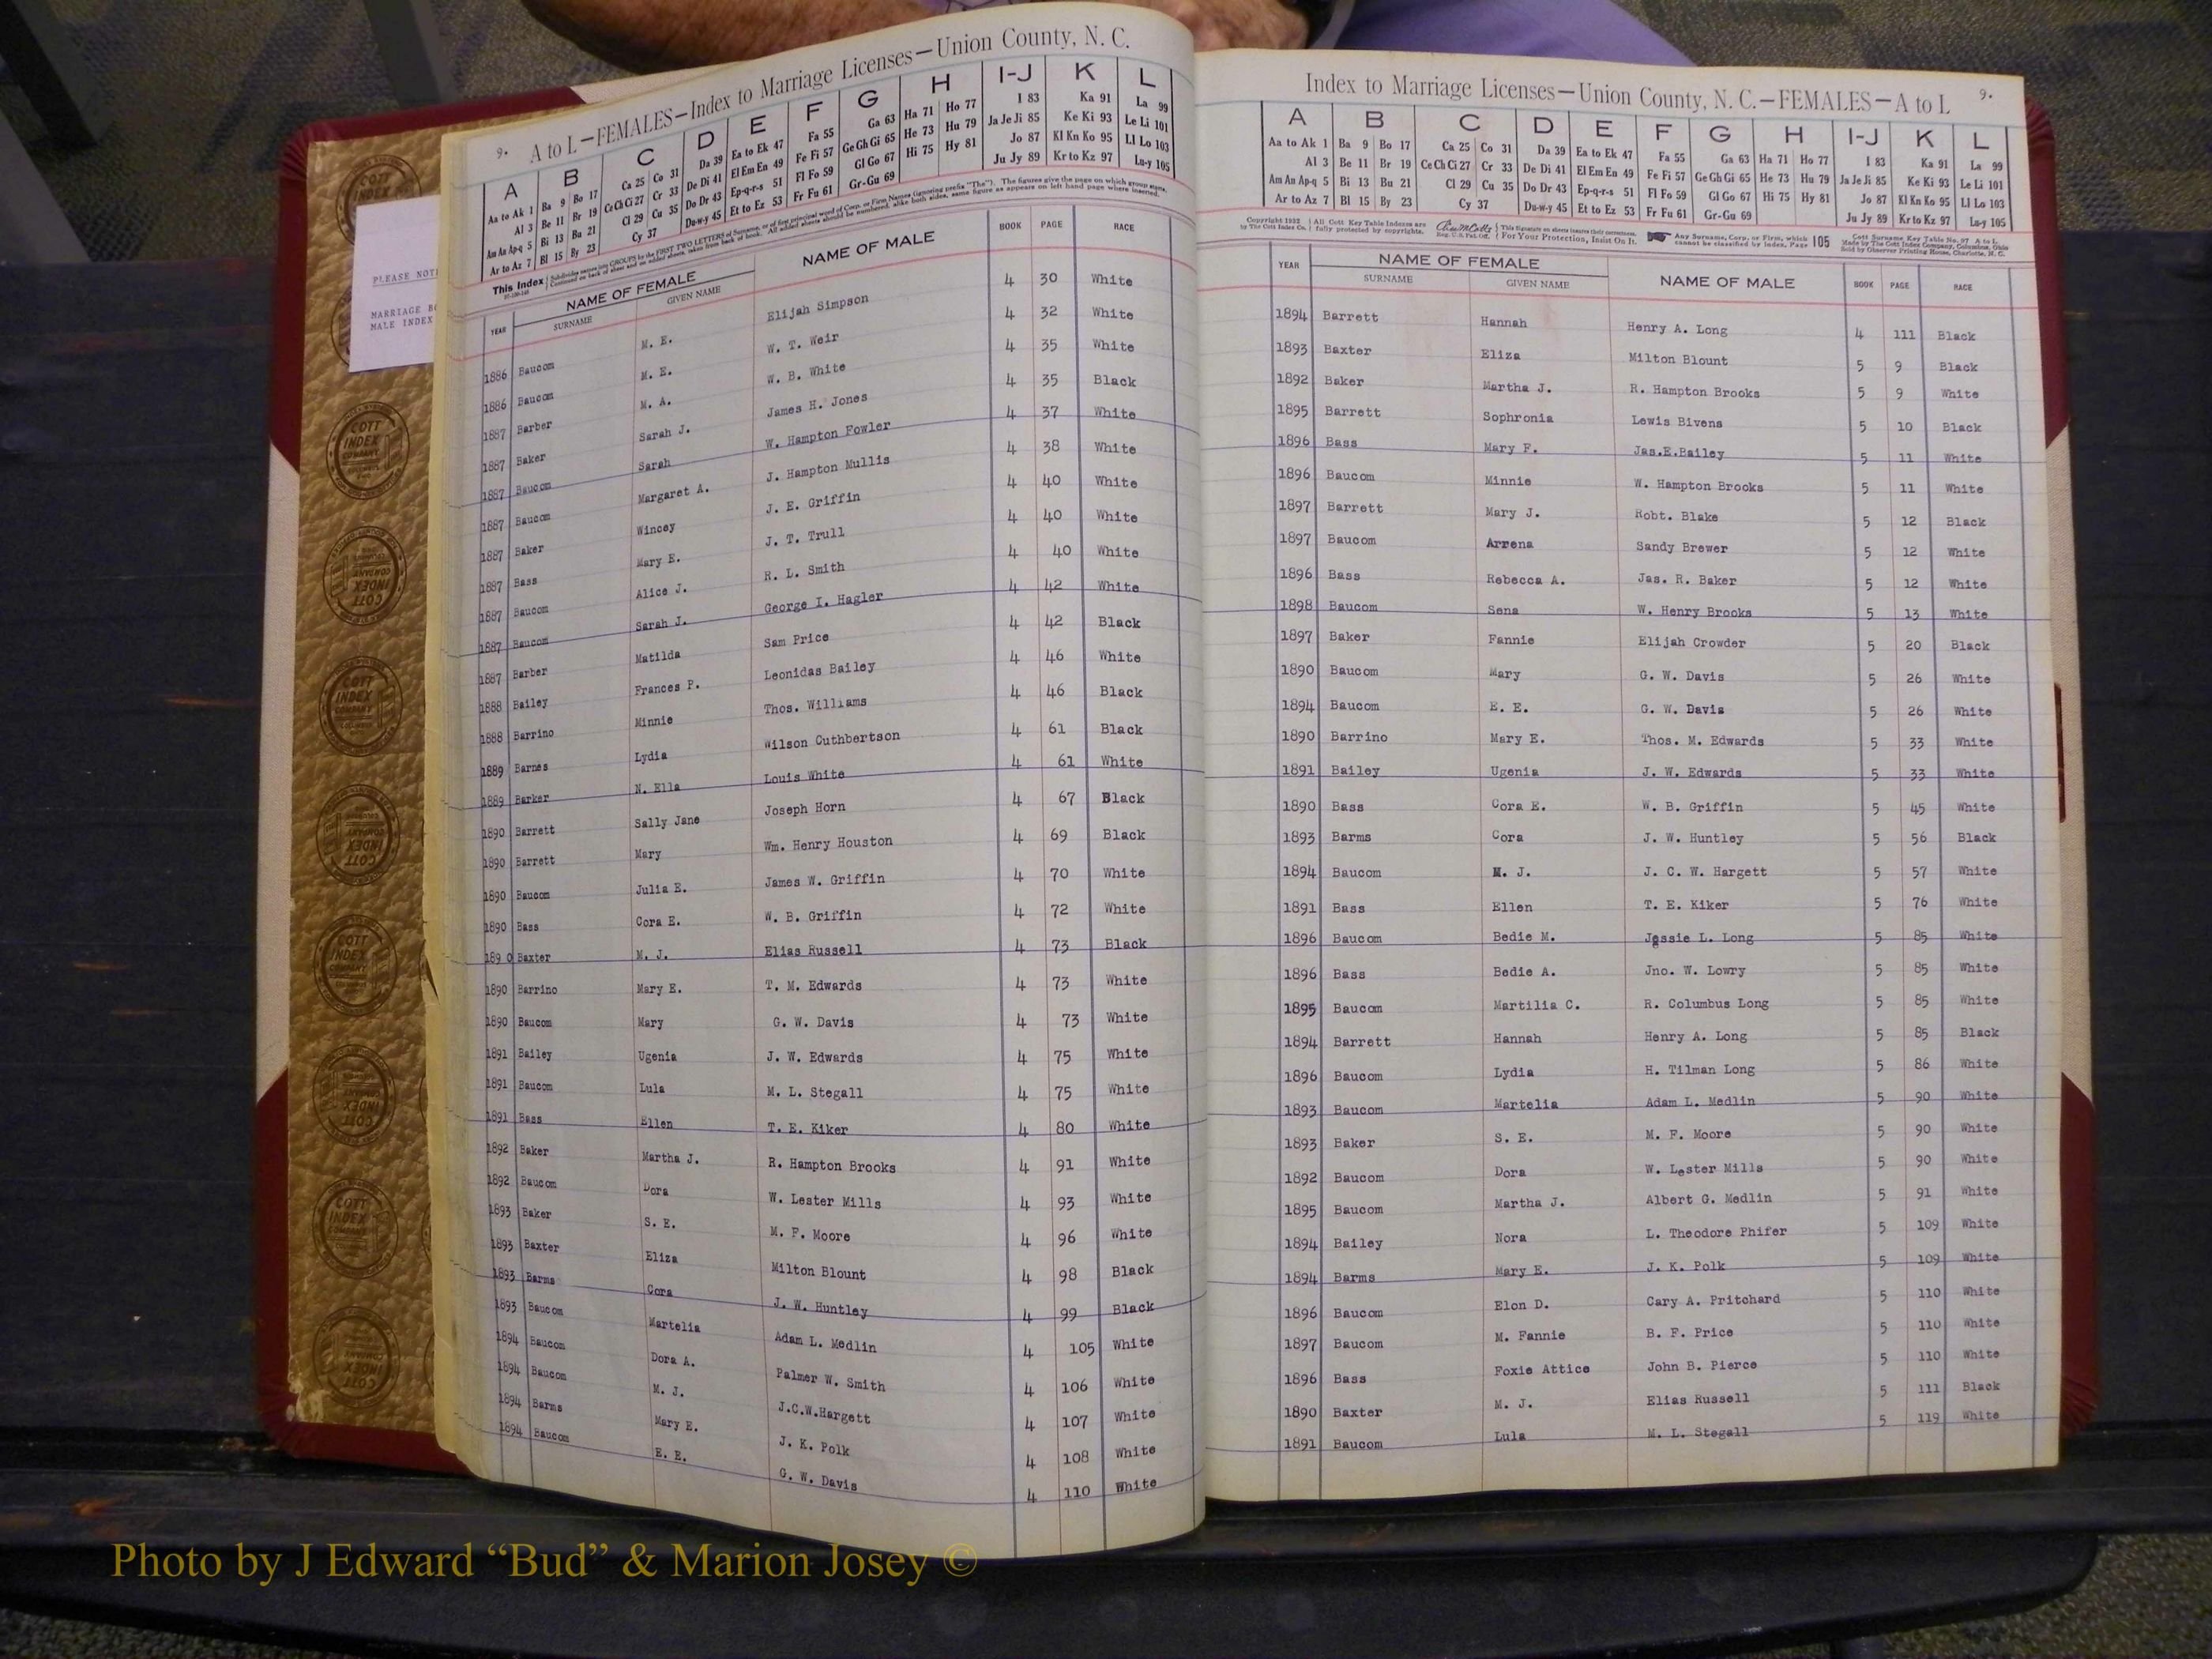 9. A to L—FEMALES—Index to Marriage Licenses—Union County, N. C.
A B C D E F G H I-J K L
Aa to Ak 1 Ba 9 Bo 17 Ca 25 Co 31 Da 39 Ea to Ek 47 Fa 55 Ga 63 Ha 71 Ho 77 I 83 Ka 91 La 99
Al 3 Be 11 Br 19 Ce Ch Ci 27 Cr 33 De Di 41 El Em En 49 Fe Fi 57 Ge Gh Gi 65 He 73 Hu 79 Ja Je Ji 85 Ke Ki 93 Le Li 101
Am An Ap-q 5 Bi 13 Bu 21 Cl 29 Cu 35 Do Dr 43 Ep-q-r-s 51 Fl Fo 59 Gl Go 67 Hi 75 Hy 81 Jo 87 Kl Kn Ko 95 Ll Lo 103
Ar to Az 7 Bl 15 By 23 Cy 37 Du-w-y 45 Et to Ez 53 Fr Fu 61 Gr-Gu 69 Ju Jy 89 Kr to Kz 97 Lu-y 105
This Index Subdivides names into GROUPS by the FIRST TWO LETTERS of Surname, or of first principal word of Corp. or Firm Names (ignoring prefix "The"). The figures give the page on which group starts,
Continued on back of sheet and on added sheets, taken from back of book. All added sheets should be numbered, alike both sides, same figure as appears on left hand page where inserted.
YEAR NAME OF FEMALE NAME OF MALE BOOK PAGE RACE
SURNAME GIVEN NAME
1886 Baucom M. E. Elijah Simpson 4 30 White
1886 Baucom M. E. W. T. Weir 4 32 White
1887 Barber M. A. W. B. White 4 35 White
1887 Baker Sarah J. James H. Jones 4 35 Black
1887 Baucom Sarah W. Hampton Fowler 4 37 White
1887 Baucom Margaret A. J. Hampton Mullis 4 38 White
1887 Baker Wincey J. E. Griffin 4 40 White
1887 Bass Mary E. J. T. Trull 4 40 White
1887 Baucom Alice J. R. L. Smith 4 40 White
1887 Baucom Sarah J. George I. Hagler 4 42 White
1887 Barber Matilda Sam Price 4 42 Black
1888 Bailey Frances P. Leonidas Bailey 4 46 White
1888 Barrino Minnie Thos. Williams 4 46 Black
1889 Barnes Lydia Wilson Cuthbertson 4 61 Black
1889 Barker N. Ella Louis White 4 61 White
1890 Barrett Sally Jane Joseph Horn 4 67 Black
1890 Barrett Mary Wm. Henry Houston 4 69 Black
1890 Baucom Julia E. James W. Griffin 4 70 White
1890 Bass Cora E. W. B. Griffin 4 72 White
1890 Baxter M. J. Elias Russell 4 73 Black
1890 Barrino Mary E. T. M. Edwards 4 73 White
1890 Baucom Mary G. W. Davis 4 73 White
1891 Bailey Ugenia J. W. Edwards 4 75 White
1891 Baucom Lula M. L. Stegall 4 75 White
1891 Bass Ellen T. E. Kiker 4 80 White
1892 Baker Martha J. R. Hampton Brooks 4 91 White
1892 Baucom Dora W. Lester Mills 4 93 White
1893 Baker S. E. M. F. Moore 4 96 White
1893 Baxter Eliza Milton Blount 4 98 Black
1893 Barms Cora J. W. Huntley 4 99 Black
1893 Baucom Martelia Adam L. Medlin 4 105 White
1894 Baucom Dora A. Palmer W. Smith 4 106 White
1894 Baucom M. J. J.C.W.Hargett 4 107 White
1894 Barms Mary E. J. K. Polk 4 108 White
1894 Baucom E. E. G. W. Davis 4 110 White
PLEASE NOT
MARRIAGE B
MALE INDEX
COTT INDEX COMPANY
Index to Marriage Licenses—Union County, N. C.—FEMALES—A to L 9.
A B C D E F G H I-J K L
Aa to Ak 1 Ba 9 Bo 17 Ca 25 Co 31 Da 39 Ea to Ek 47 Fa 55 Ga 63 Ha 71 Ho 77 I 83 Ka 91 La 99
Al 3 Be 11 Br 19 Ce Ch Ci 27 Cr 33 De Di 41 El Em En 49 Fe Fi 57 Ge Gh Gi 65 He 73 Hu 79 Ja Je Ji 85 Ke Ki 93 Le Li 101
Am An Ap-q 5 Bi 13 Bu 21 Cl 29 Cu 35 Do Dr 43 Ep-q-r-s 51 Fl Fo 59 Gl Go 67 Hi 75 Hy 81 Jo 87 Kl Kn Ko 95 Ll Lo 103
Ar to Az 7 Bl 15 By 23 Cy 37 Du-w-y 45 Et to Ez 53 Fr Fu 61 Gr-Gu 69 Ju Jy 89 Kr to Kz 97 Lu-y 105
Copyright 1932 All Cott Key Table Indexes are This signature on sheets insures their correctness. Any Surname, Corp. or Firm, which 105 Cott Surname Key Table No. 97 A to L
by The Cott Index Co. fully protected by copyrights. Reg. U.S. Pat. Off. For Your Protection, Insist On It. cannot be classified by Index, Page Made by The Cott Index Company, Columbus, Ohio
Sold by Observer Printing House, Charlotte, N. C.
YEAR NAME OF FEMALE NAME OF MALE BOOK PAGE RACE
SURNAME GIVEN NAME
1894 Barrett Hannah Henry A. Long 4 111 Black
1893 Baxter Eliza Milton Blount 5 9 Black
1892 Baker Martha J. R. Hampton Brooks 5 9 White
1895 Barrett Sophronia Lewis Bivens 5 10 Black
1896 Bass Mary F. Jas.E.Bailey 5 11 White
1896 Baucom Minnie W. Hampton Brooks 5 11 White
1897 Barrett Mary J. Robt. Blake 5 12 Black
1897 Baucom Arrena Sandy Brewer 5 12 White
1896 Bass Rebecca A. Jas. R. Baker 5 12 White
1898 Baucom Sena W. Henry Brooks 5 13 White
1897 Baker Fannie Elijah Crowder 5 20 Black
1890 Baucom Mary G. W. Davis 5 26 White
1894 Baucom E. E. G. W. Davis 5 26 White
1890 Barrino Mary E. Thos. M. Edwards 5 33 White
1891 Bailey Ugenia J. W. Edwards 5 33 White
1890 Bass Cora E. W. B. Griffin 5 45 White
1893 Barms Cora J. W. Huntley 5 56 Black
1894 Baucom M. J. J. C. W. Hargett 5 57 White
1891 Bass Ellen T. E. Kiker 5 76 White
1896 Baucom Bedie M. Jessie L. Long 5 85 White
1896 Bass Bedie A. Jno. W. Lowry 5 85 White
1895 Baucom Martilia C. R. Columbus Long 5 85 White
1894 Barrett Hannah Henry A. Long 5 85 Black
1896 Baucom Lydia H. Tilman Long 5 86 White
1893 Baucom Martelia Adam L. Medlin 5 90 White
1893 Baker S. E. M. F. Moore 5 90 White
1892 Baucom Dora W. Lester Mills 5 90 White
1895 Baucom Martha J. Albert G. Medlin 5 91 White
1894 Bailey Nora L. Theodore Phifer 5 109 White
1894 Barms Mary E. J. K. Polk 5 109 White
1896 Baucom Elon D. Cary A. Pritchard 5 110 White
1897 Baucom M. Fannie B. F. Price 5 110 White
1896 Bass Foxie Attice John B. Pierce 5 110 White
1890 Baxter M. J. Elias Russell 5 111 Black
1891 Baucom Lula M. L. Stegall 5 119 White
Photo by J Edward “Bud” & Marion Josey ©